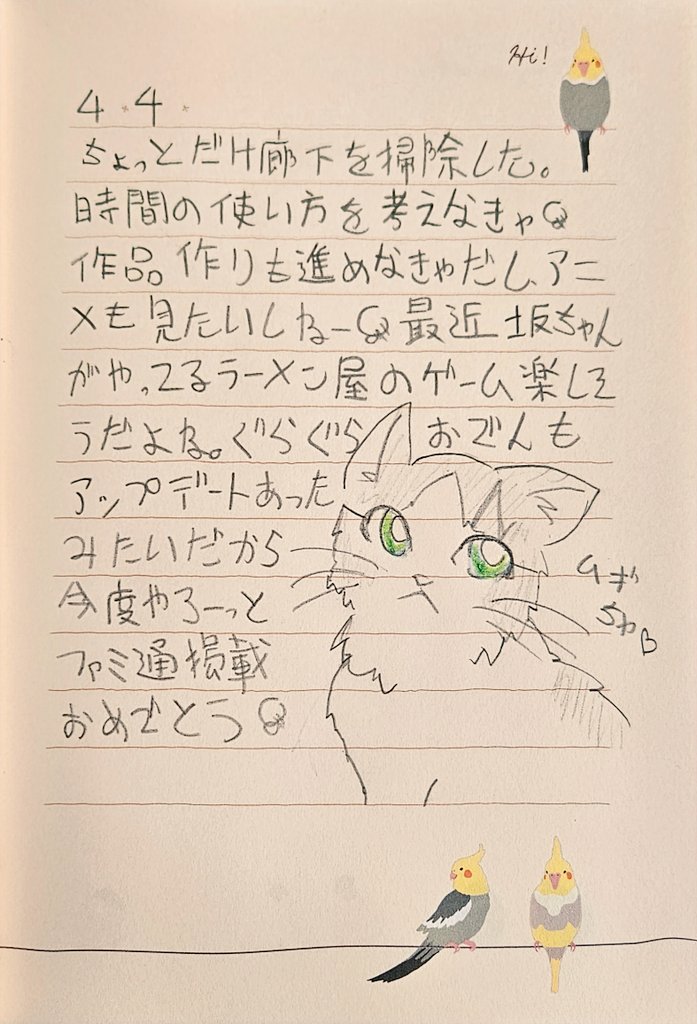 Hi!
4.4.
ちょっとだけ廊下を掃除した。
時間の使い方を考えなきゃ
作品作りも進めなきゃだし、アニ
メも見たいしねー 最近坂ちゃん
がやってるラーメン屋のゲーム楽しそ
うだよね。ぐらぐらおでんも
アップデートあった
みたいだから
今度やろーっと
ファミ通掲載
おめでとう
ムギ
ちゃ